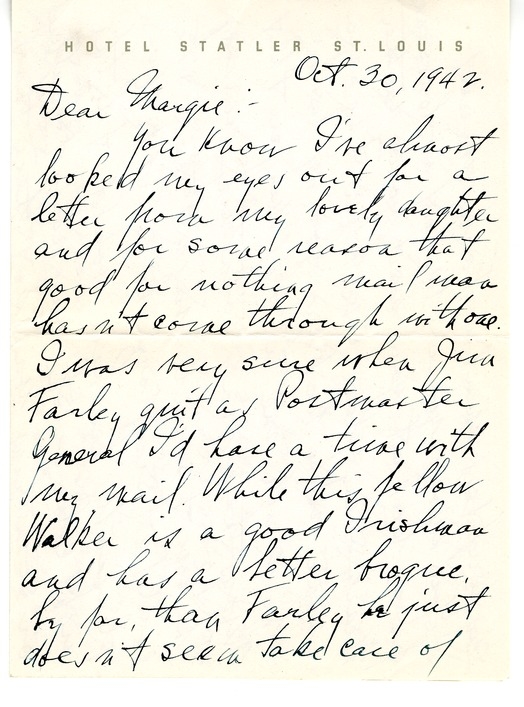 HOTEL STATLER ST. LOUIS
Oct. 30, 1942.
Dear Margie:-
You know I've almost
looked my eyes out for a
letter from my lovely daughter
and for some reason that
good for nothing mail man
hasn't come through with one.
I was very sure when Jim
Farley quit as Postmaster
General I'd have a time with
my mail. While this fellow
Walker is a good Irishman
and has a better brogue,
by far, than Farley he just
doesn't seem take care of